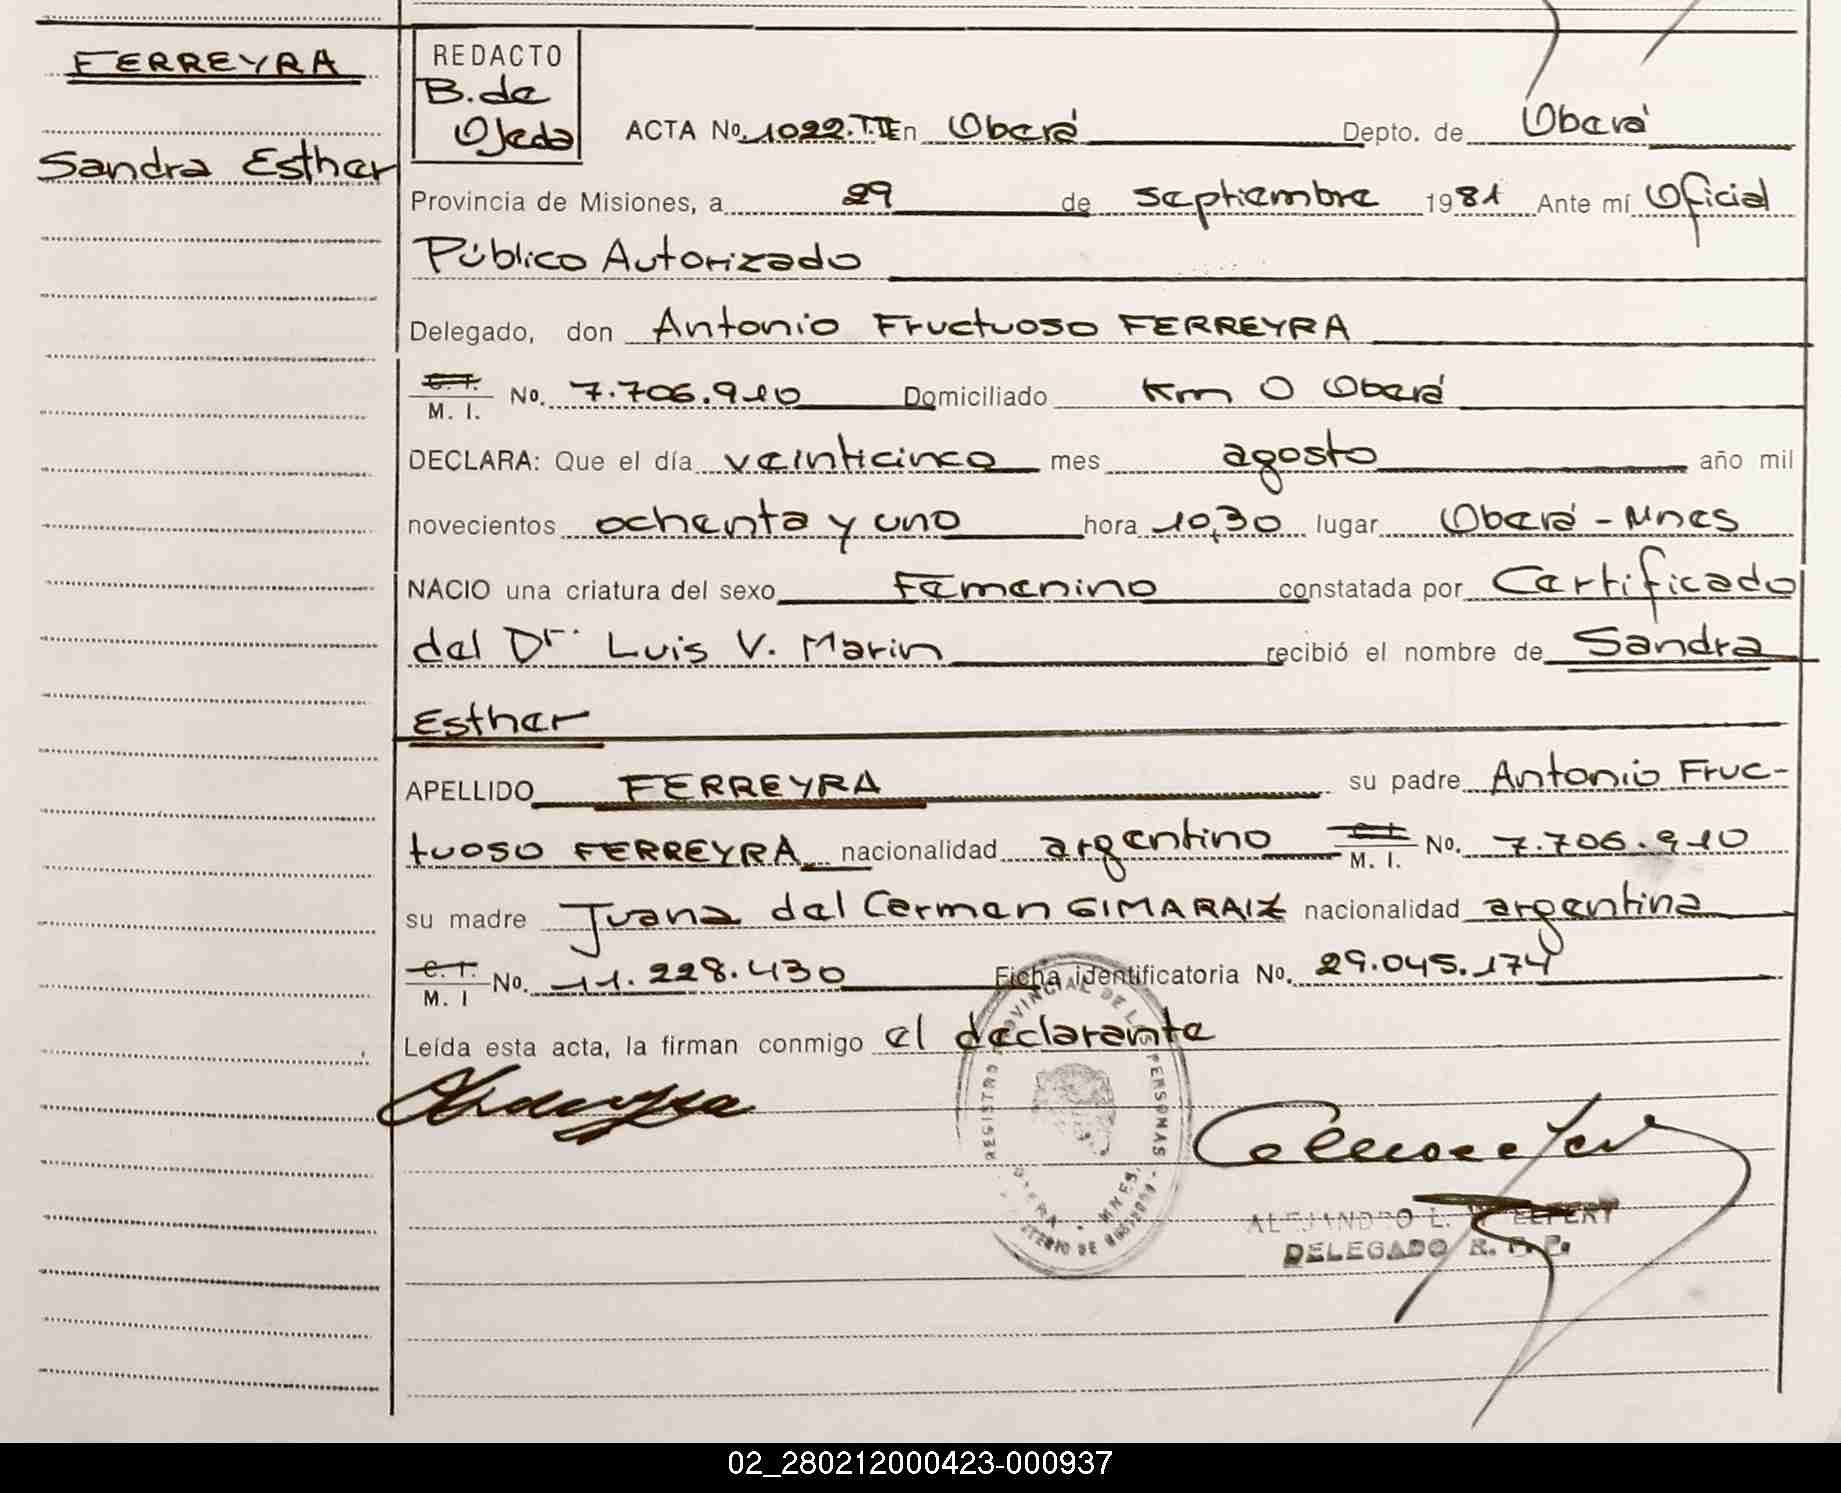 FERREYRA
Sandra Esther
REDACTO
B. de
Ojeda
ACTA No. 1022.T.II En Oberá Depto. de Oberá
Provincia de Misiones, a 29 de septiembre 1981 Ante mí Oficial
Público Autorizado
Delegado, don Antonio Fructuoso FERREYRA
C. I. M. I. No. 7.706.910 Domiciliado Km 0 Oberá
DECLARA: Que el día veinticinco mes agosto año mil
novecientos ochenta y uno hora 10,30 lugar Oberá - Mnes
NACIO una criatura del sexo Femenino constatada por Certificado
del Dr. Luis V. Marin recibió el nombre de Sandra
Esther
APELLIDO FERREYRA su padre Antonio Fruc-
tuoso FERREYRA nacionalidad argentino C. I. M. I. No. 7.706.910
su madre Juana del Carmen GIMARAIZ nacionalidad argentina
C. I. M. I No. 11.228.430 Ficha identificatoria No. 29.045.174
Leída esta acta, la firman conmigo el declarante
REGISTRO PROVINCIAL DE LAS PERSONAS
OBERA - MNES.
ALEJANDRO L.
DELEGADO R. P. P.
02_280212000423-000937